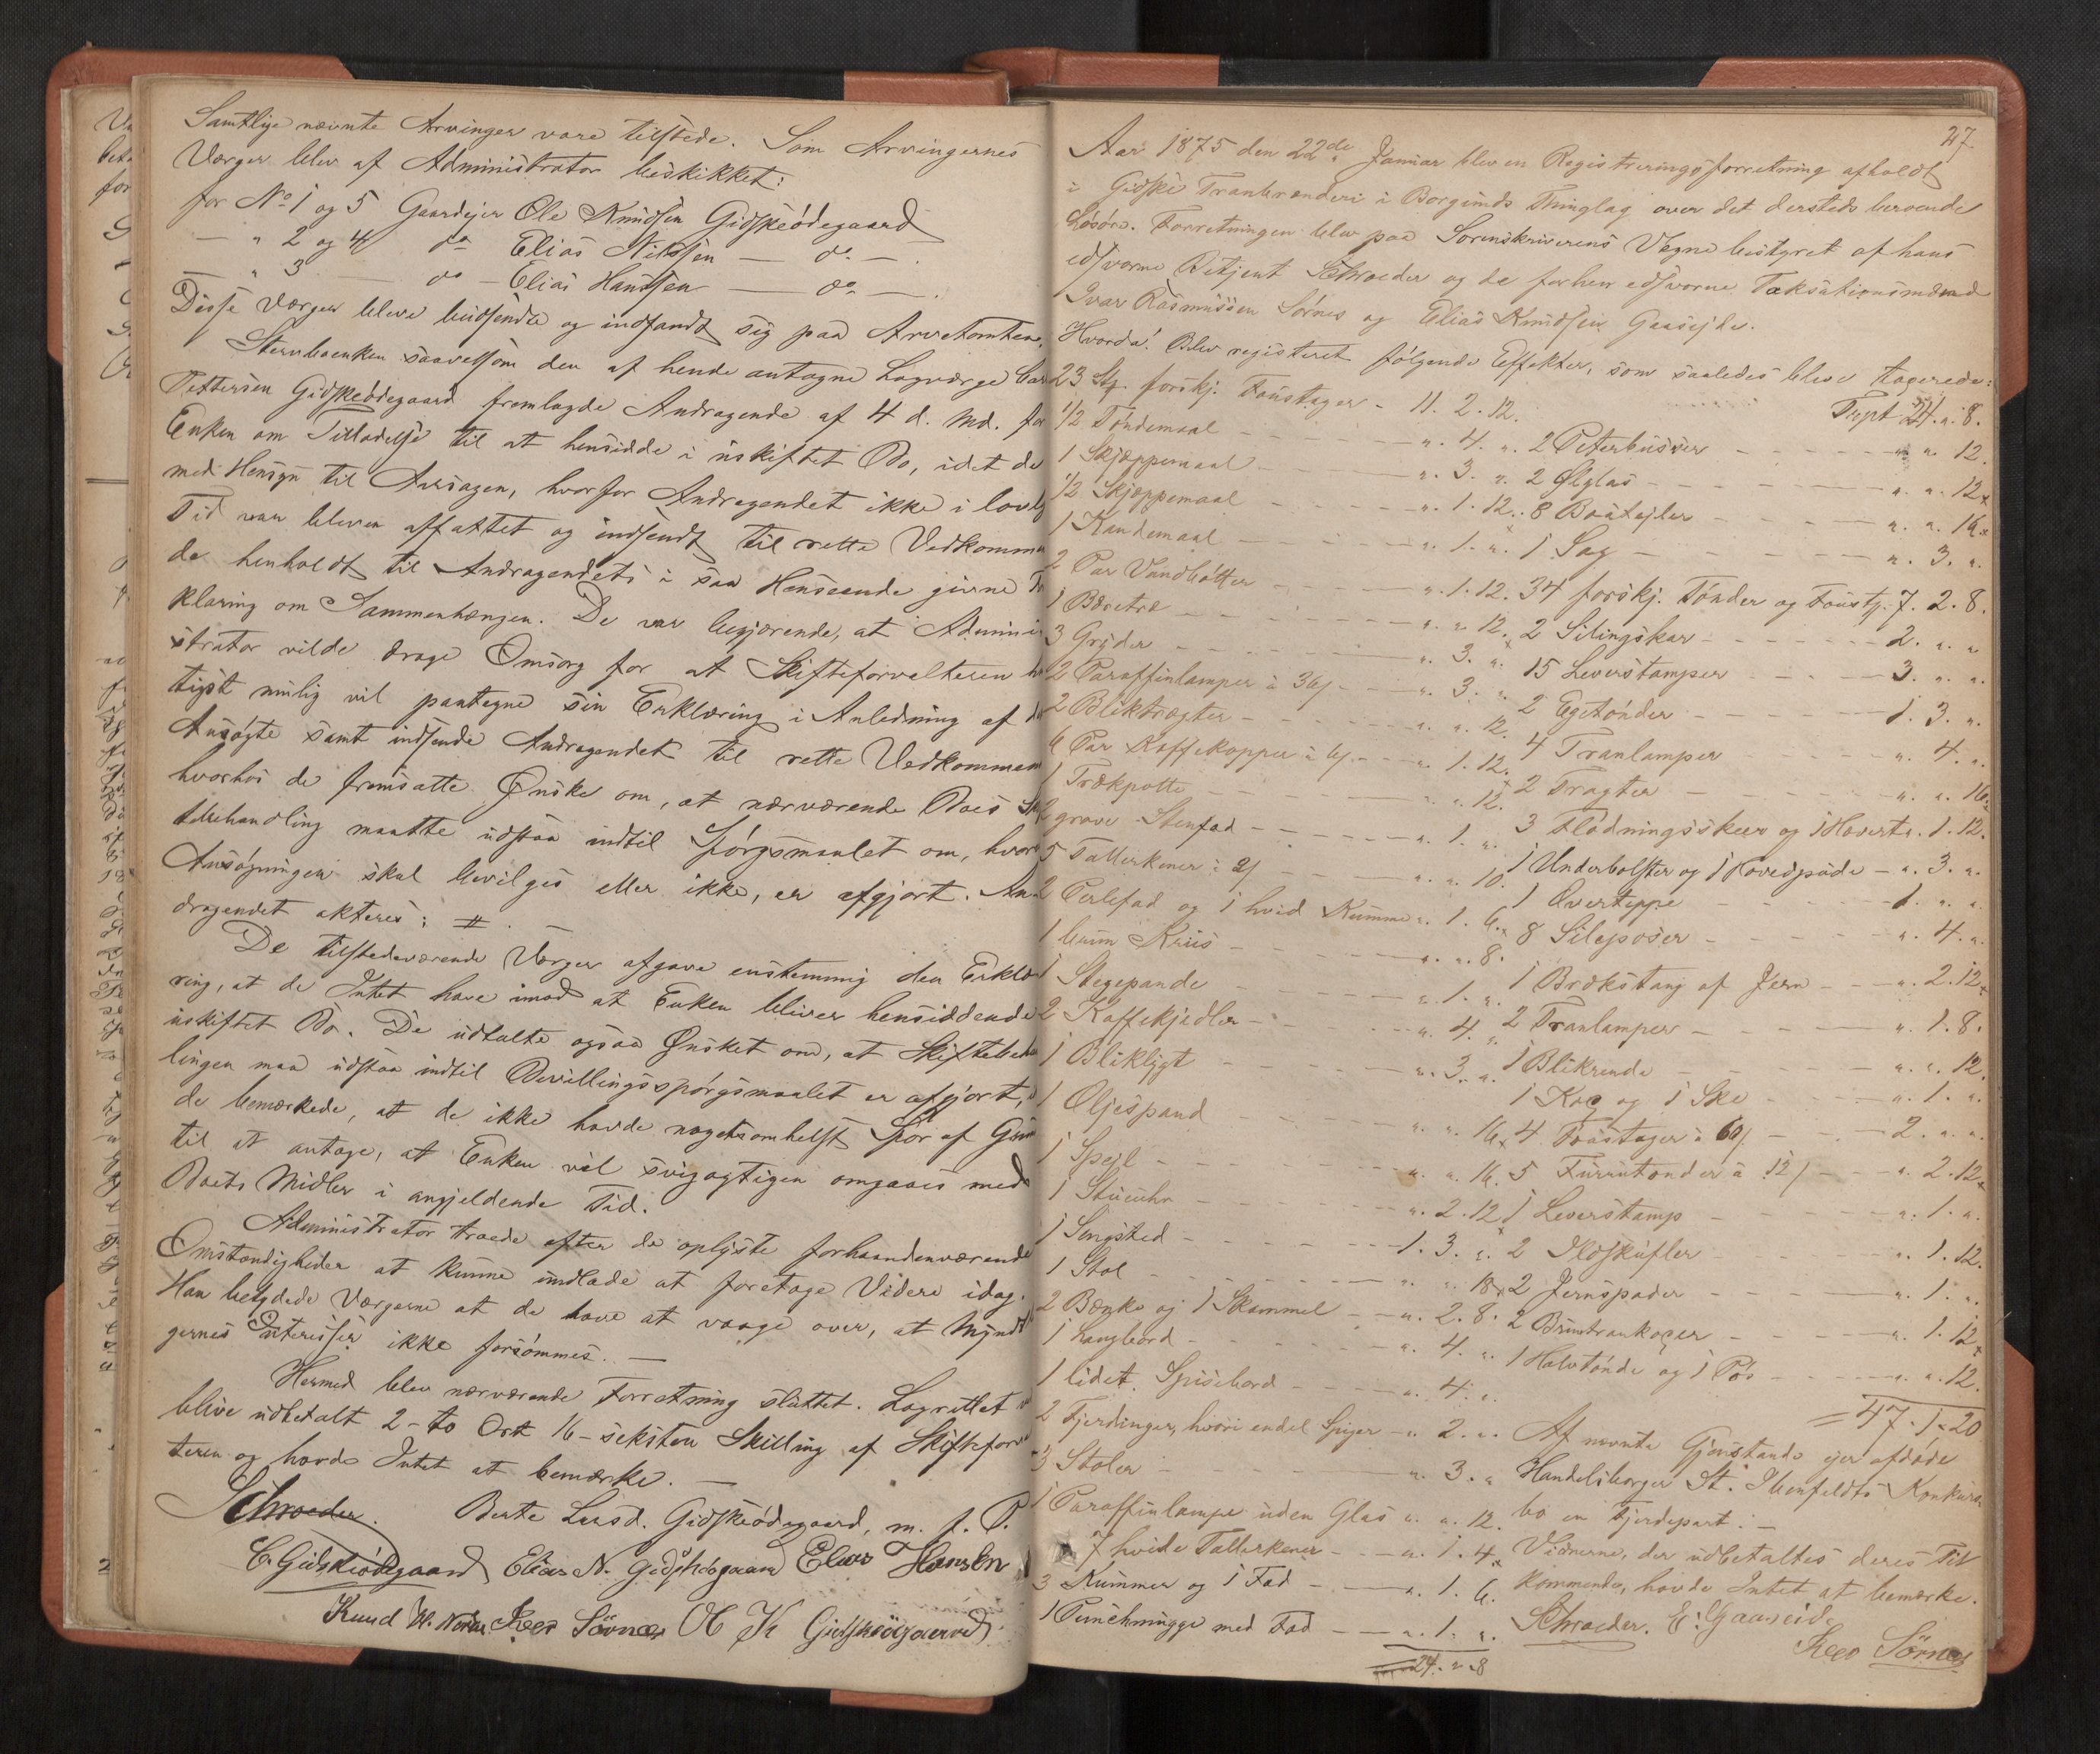 Samtlige nævnte Arvinger vare tilstede. Som Arvingernes
Værger blev af Administrator beskikket:
for No 1 og 5 Gaardejer Ole Knudsen Gidskeødegaard
— " 2 og 4 do Elias Nilssen — do —.
— " 3 — do — Elias Hanssen — do —.
Disse Værger bleve budsendte og indfandt sig paa Arvetomten.
Stervboenken saavelsom den af hende antagne Lagværge
Pettersen Gidskeødegaard fremlagde Andragende af 4 d. Md. for
Enken om Tilladelse til at hensidde i uskiftet Bo, idet de
med Hensyn til Aarsagen, hvorfor Andragendet ikke i lovlig
Tid var bleven affattet og indsendt til rette Vedkomm
de henholdt til Andragendets i saa Henseende givne
klaring om Sammenhængen. De var begjærende, at Admini
strator vilde drage Omsorg for at Skifteforvalteren
tigst mulig vil paategne sin Erklæring i Anledning af
Ansøgte samt indsende Andragendet til rette Vedkommen
hvorhos de fremsatte Ønske om, at nærværende Boes
tebehandling maatte udstaa indtil Spørgsmaalet om, hvor
Ansøgningen skal bevilges eller ikke, er afgjort. An
dragendet akteres: #.
De tilstedeværende Værger afgave enstemmig den Erklæ
ring, at de Intet have imod at Enken bliver hensiddende
uskiftet Bo. De udtalte ogsaa Ønsket om, at Skiftebeha
lingen maa udstaa indtil Bevillingsspørgsmaalet er afgjort,
de bemærkede, at de ikke havde nogetsomhelst Spor af
til at antage, at Enken vil svigagtigen omgaaes med
Boets Midler i angjeldende Tid.
Administrator troede efter de oplyste forhaandenværende
Omstændigheder at kunne undlade at foretage Videre idag.
Han betydede Værgerne at de have at vaage over, at Mynd
gernes Interesser ikke forsømmes. —
Hermed blev nærværende Forretning sluttet. Lagrettet
blive udbetalt 2 - to Ort 16 - seksten Skilling af Skiftefor
teren og havde Intet at bemærke. —
Schroeder. Berte Larsd. Gidskeødegaard, m. f. P.
C. Gidskeødegaard Elias N. Gidskeøgaard Elias Hansen
Knud Iver Sørnes O K Gidskeøgaard
27.
Aar 1875 den 22de Januar blev en Registreringsforretning afholdt
i Gidske Tranbrænderi i Borgunds Thinglag over det dersteds beroende
Løsøre. Forretningen blev paa Sorenskriverens Vegne bestyret af hans
edsvorne Betjent Schroeder og de forhen edsvorne Taksationsmænd
Ivar Rasmussen Sørnes og Elias Knudsen Gaaseide.
Hvorda: Blev registreret følgende Effekter, som saaledes bleve taxerede:
23 Stk. forskj. Foustager - 11. 2. 12.
1/2 Tøndemaal — ". 4. ".
1 Skjæppemaal — ". 3. ".
1/2 Skjæppemaal — ". 1. 12.
1 Kandemaal — ". 1. ".
2 Par Vandbøtter — ". 1. 12.
1 Bæretræ — ". ". 12.
3 Gryder — ". 3. ".
2 Paraffinlamper à 36/ — ". 3. ".
2 Bliktragter — ". ". 12.
6 Par Kaffekopper à 6/ — ". 1. 12.
1 Trækpotte — ". ". 12.
2 grove Stenfad — ". 1. ".
5 Tallerkener à 2/ — ". ". 10.
2 Perlefad og 1 hvid Kumme ". 1. 6.
1 brun Krus — ". ". 8.
1 Stegepande — ". 1. ".
2 Kaffekjedler — ". 4. ".
1 Bliklygt — ". 3. ".
1 Oljespand — ". ". 16.
1 Spejl — ". ". 16.
1 Stueuhr — ". 2. 12.
1 Sengsted — 1. 3. ".
1 Stol — ". ". 18.
2 Bænke og 1 Skammel — ". 2. 8.
1 Langbord — ". 4. ".
1 lidet Spisebord — ". 4. ".
2 Fjerdinger, hvori endel Spiger — ". 2. ".
3 Stoler — ". 3. ".
1 Paraffinlampe uden Glas ". ". 12.
7 hvide Tallerkener — ". 1. 4.
3 Kummer og 1 Fad — ". 1. 6.
1 Punchmugge med Fad — ". 1. ".
24. ". 8
Trspt 24. ". 8.
2 Peterbusser — ". ". 12.
2 Ølglas — ". ". 12.
8 Bøitejler — ". ". 16.
1 Sag — ". 3. ".
34 forskj. Tønder og Foustg. 7. 2. 8.
2 Silingskar — 2. ". ".
15 Leverstamper — 3. ". ".
2 Egetønder — 1. 3. ".
4 Tranlamper — ". 4. ".
2 Tragter — ". ". 16.
3 Flødningsskeer og 1 Hævert ". 1. 12.
1 Underbolster og 1 Hovedpude — ". 3. ".
1 Overteppe — 1. ". ".
8 Sileposer — ". 4. ".
1 Brækstang af Jern — ". 2. 12.
2 Tranlamper — ". 1. 8.
1 Blikrende — ". ". 12.
1 Krog og 1 Ske — ". 1. ".
4 Foustager à 60/ — 2. ". ".
5 Furutønder à 12/ — ". 2. 12.
1 Leverstamp — ". 1. ".
2 Ildskufler — ". 1. 12.
2 Jernspader — ". 1. ".
2 Bruntrankager — ". 1. 12.
1 Halvtønde og 1 Øs — ". ". 12.
= 47. 1. 20
Af nævnte Gjenstande ejer afdøde
Handelsborger St. Ibenfeldts Konkurs
bo en Fjerdepart. —
Vidnerne, der udbetaltes deres Til
kommende, havde Intet at bemærke.
Schroeder. E: Gaaseide
Iver Sørnes